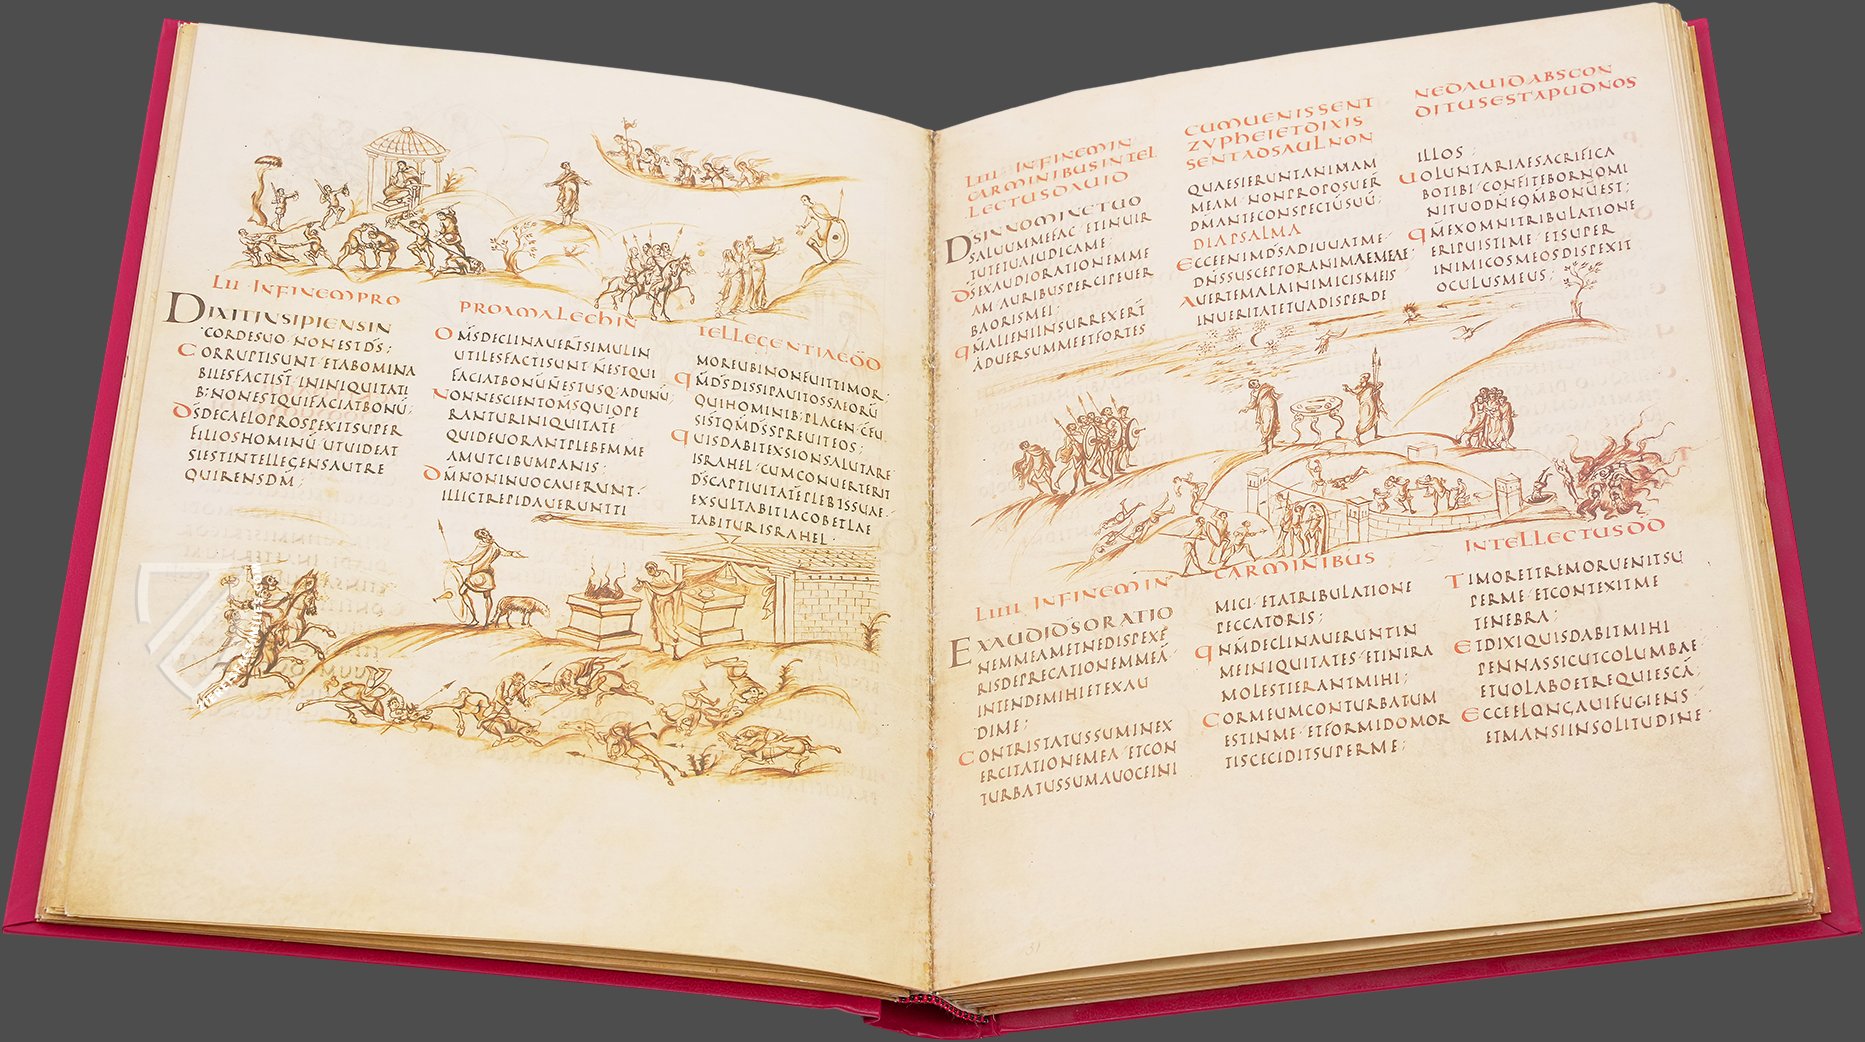 LII · INFINEM PRO
DIXITINSIPIENSIN
CORDESUO · NONESTD̄S;
CORRUPTISUNT · ETABOMINA
BILESFACTISŪT ININIQUITATI
B; NONESTQUIFACIATBONŪ;
D̄SDECAELOPROSPEXITSUPER
FILIOSHOMINŪ UTUIDEAT
SIESTINTELLEGENSAUTRE
QUIRENSD̄M;
PROXMALECHIN
OM̄SDECLINAUER̄T SIMULIN
UTILESFACTISUNT · N̄ESTQUI
FACIATBONŪ N̄ESTUSQ; ADUNŪ;
NONNESCIENTOM̄SQUIOPE
RANTURINIQUITATĒ
QUIDEUORANTPLEBEMME
AMUTCIBUMPANIS;
D̄MNONINUOCAUERUNT ·
ILLICTREPIDAUERUNTTI
TELLEGENTIAEDD
MOREUBINONFUITTIMOR;
QM̄D̄SDISSIPAUITOSSAEORŪ
QUIHOMINIB; PLACENT
SIS̄TQM̄D̄SSPREUITEOS;
QUISDABITEXSIONSALUTARE
ISRAHEL · CUMCONUERTERIT
D̄SCAPTIUITATĒPLEBISSUAE ·
EXSULTABITIACOBETLAE
TABITURISRAHEL ·
LIII · INFINEMIN
CARMINIBUSINTEL
LECTUSDAUID
DSINNOMINETUO
SALUUMMEFAC · ETINUIR
TUTETUAIUDICAME;
D̄SEXAUDIORATIONEMME
AM · AURIBUSPERCIPEUER
BAORISMEI;
QM̄ALIENIINSURREXER̄T
ADUERSUMMEETFORTES
CUMUENISSENT
ZYPHEIETDIXIS
SENTADSAULNON
QUAESIERUNTANIMAM
MEAM · NONPROPOSUER̄
D̄MANTECONSPECTŪSUŪ;
DIAPSALMA
ECCEENIMD̄SADIUUATME ·
DN̄SSUSCEPTORANIMAEMEAE ·
AUERTEMALAINIMICISMEIS
INUERITATETUADISPERDE
NEDAUIDABSCON
DITUSESTAPUDNOS
ILLOS;
UOLUNTARIAESACRIFICA
BOTIBI · CONFITEBORNOMI
NITUODN̄EQM̄BONŪEST;
QM̄EXOMNITRIBULATIONE
ERIPUISTIME · ETSUPER
INIMICOSMEOSDISPEXIT
OCULUSMEUS;
LIIII · INFINEMIN
EXAUDID̄SORATIO
NEMMEAMETNEDISPEXE
RISDEPRECATIONEMMEĀ ·
INTENDEMIHIETEXAU
DIME;
CONTRISTATUSSUMINEX
ERCITATIONEMEA · ETCON
TURBATUSSUMAUOCEINI
CARMINIBUS
MICI · ETATRIBULATIONE
PECCATORIS;
QN̄MDECLINAUERUNTIN
MEINIQUITATES · ETINIRA
MOLESTIERANTMIHI;
CORMEUMCONTURBATUM
ESTINME · ETFORMIDOMOR
TISCECIDITSUPERME;
INTELLECTUSDD
TIMORETTREMORUENITSU
PERME · ETCONTEXITME
TENEBRA;
ETDIXIQUISDABITMIHI
PENNASSICUTCOLUMBAE ·
ETUOLABOETREQUIESCĀ;
ECCEELONGAUIFUGIENS ·
ETMANSIINSOLITUDINE ·
31